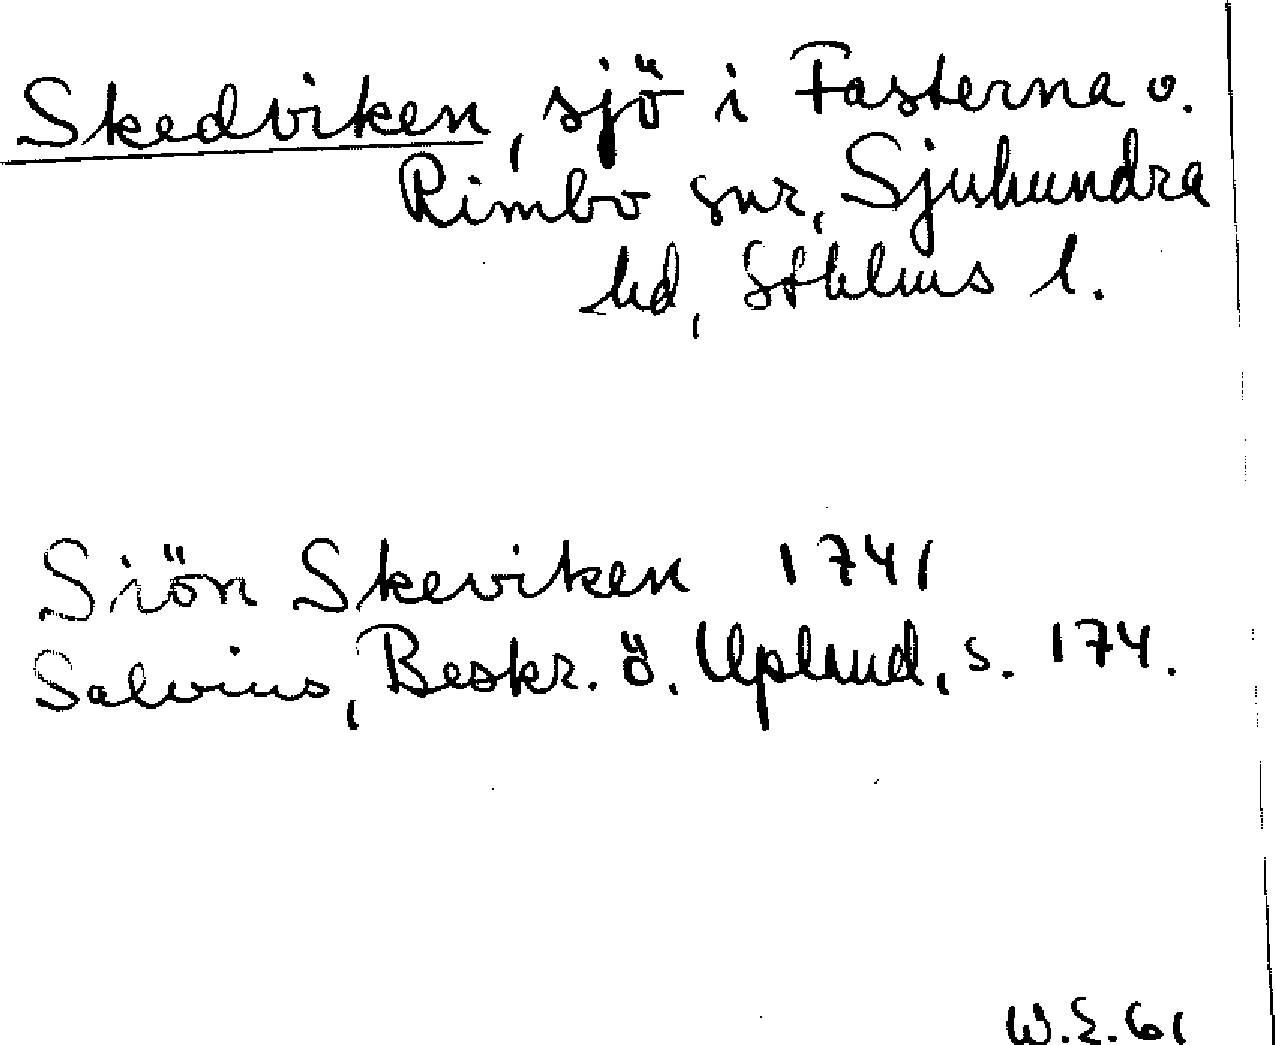 Skedviken, sjö i Fasterna o.
Rimbo snr, Sjuhundra
hd, Sthlms l.
Siön Skeviken 1741
Salvius, Beskr. ö. Upland, s. 174.
W.E. 61